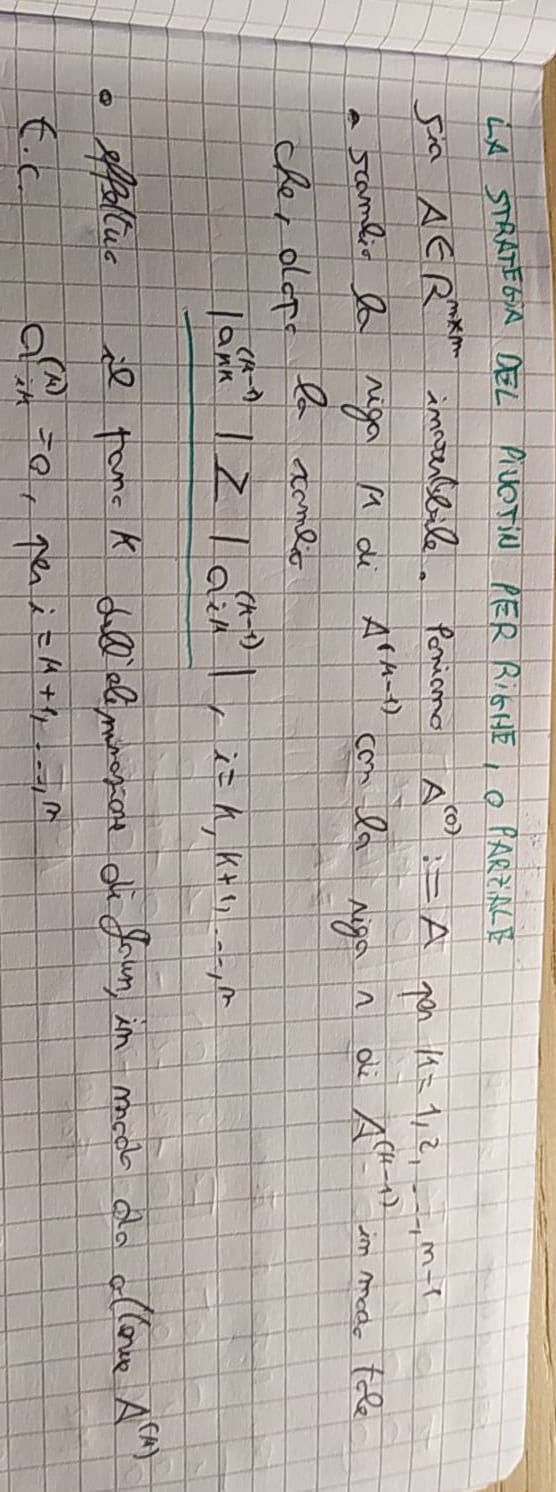 LA STRATEGIA DEL PIVOTIN PER RIGHE, O PARZIALE
Sia A ∈ R^{n×n} invertibile. Poniamo A^{(0)} := A per k = 1, 2, ..., n-1
• scambio la riga k di A^{(k-1)} con la riga r di A^{(k-1)} in modo tale
che, dopo lo scambio
|a_{kk}^{(k-1)}| ≥ |a_{ik}^{(k-1)}|, i = k, k+1, ..., n
• effettuo il passo k dell'eliminazione di Gauss, in modo da ottenere A^{(k)}
t.c. a_{ik}^{(k)} = 0, per i = k+1, ..., n